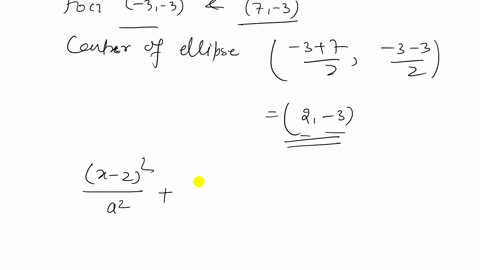 Foci (-3,-3) & (7,-3)
Center of ellipse ( (-3+7)/2 , (-3-3)/2 )
= (2,-3)
(x-2)²/a² +